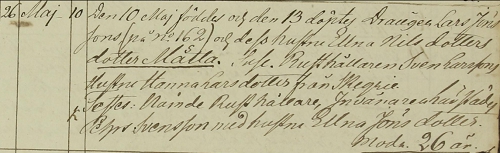 26 Maj 10 Den 10 Maj föddes och den 13 döptes Drängen Lars Jöns
sons på No 162 och dess hustru Ellna Nils dotters
dotter Mätta. Susc. Rusthållaren Sven Larssons
Hustru Hanna Lars dotter från Skegrie
Testes: Rusthållare,
Pehrs Svensson med hustru Ellna Jöns dotter.
Modr. 26 år.